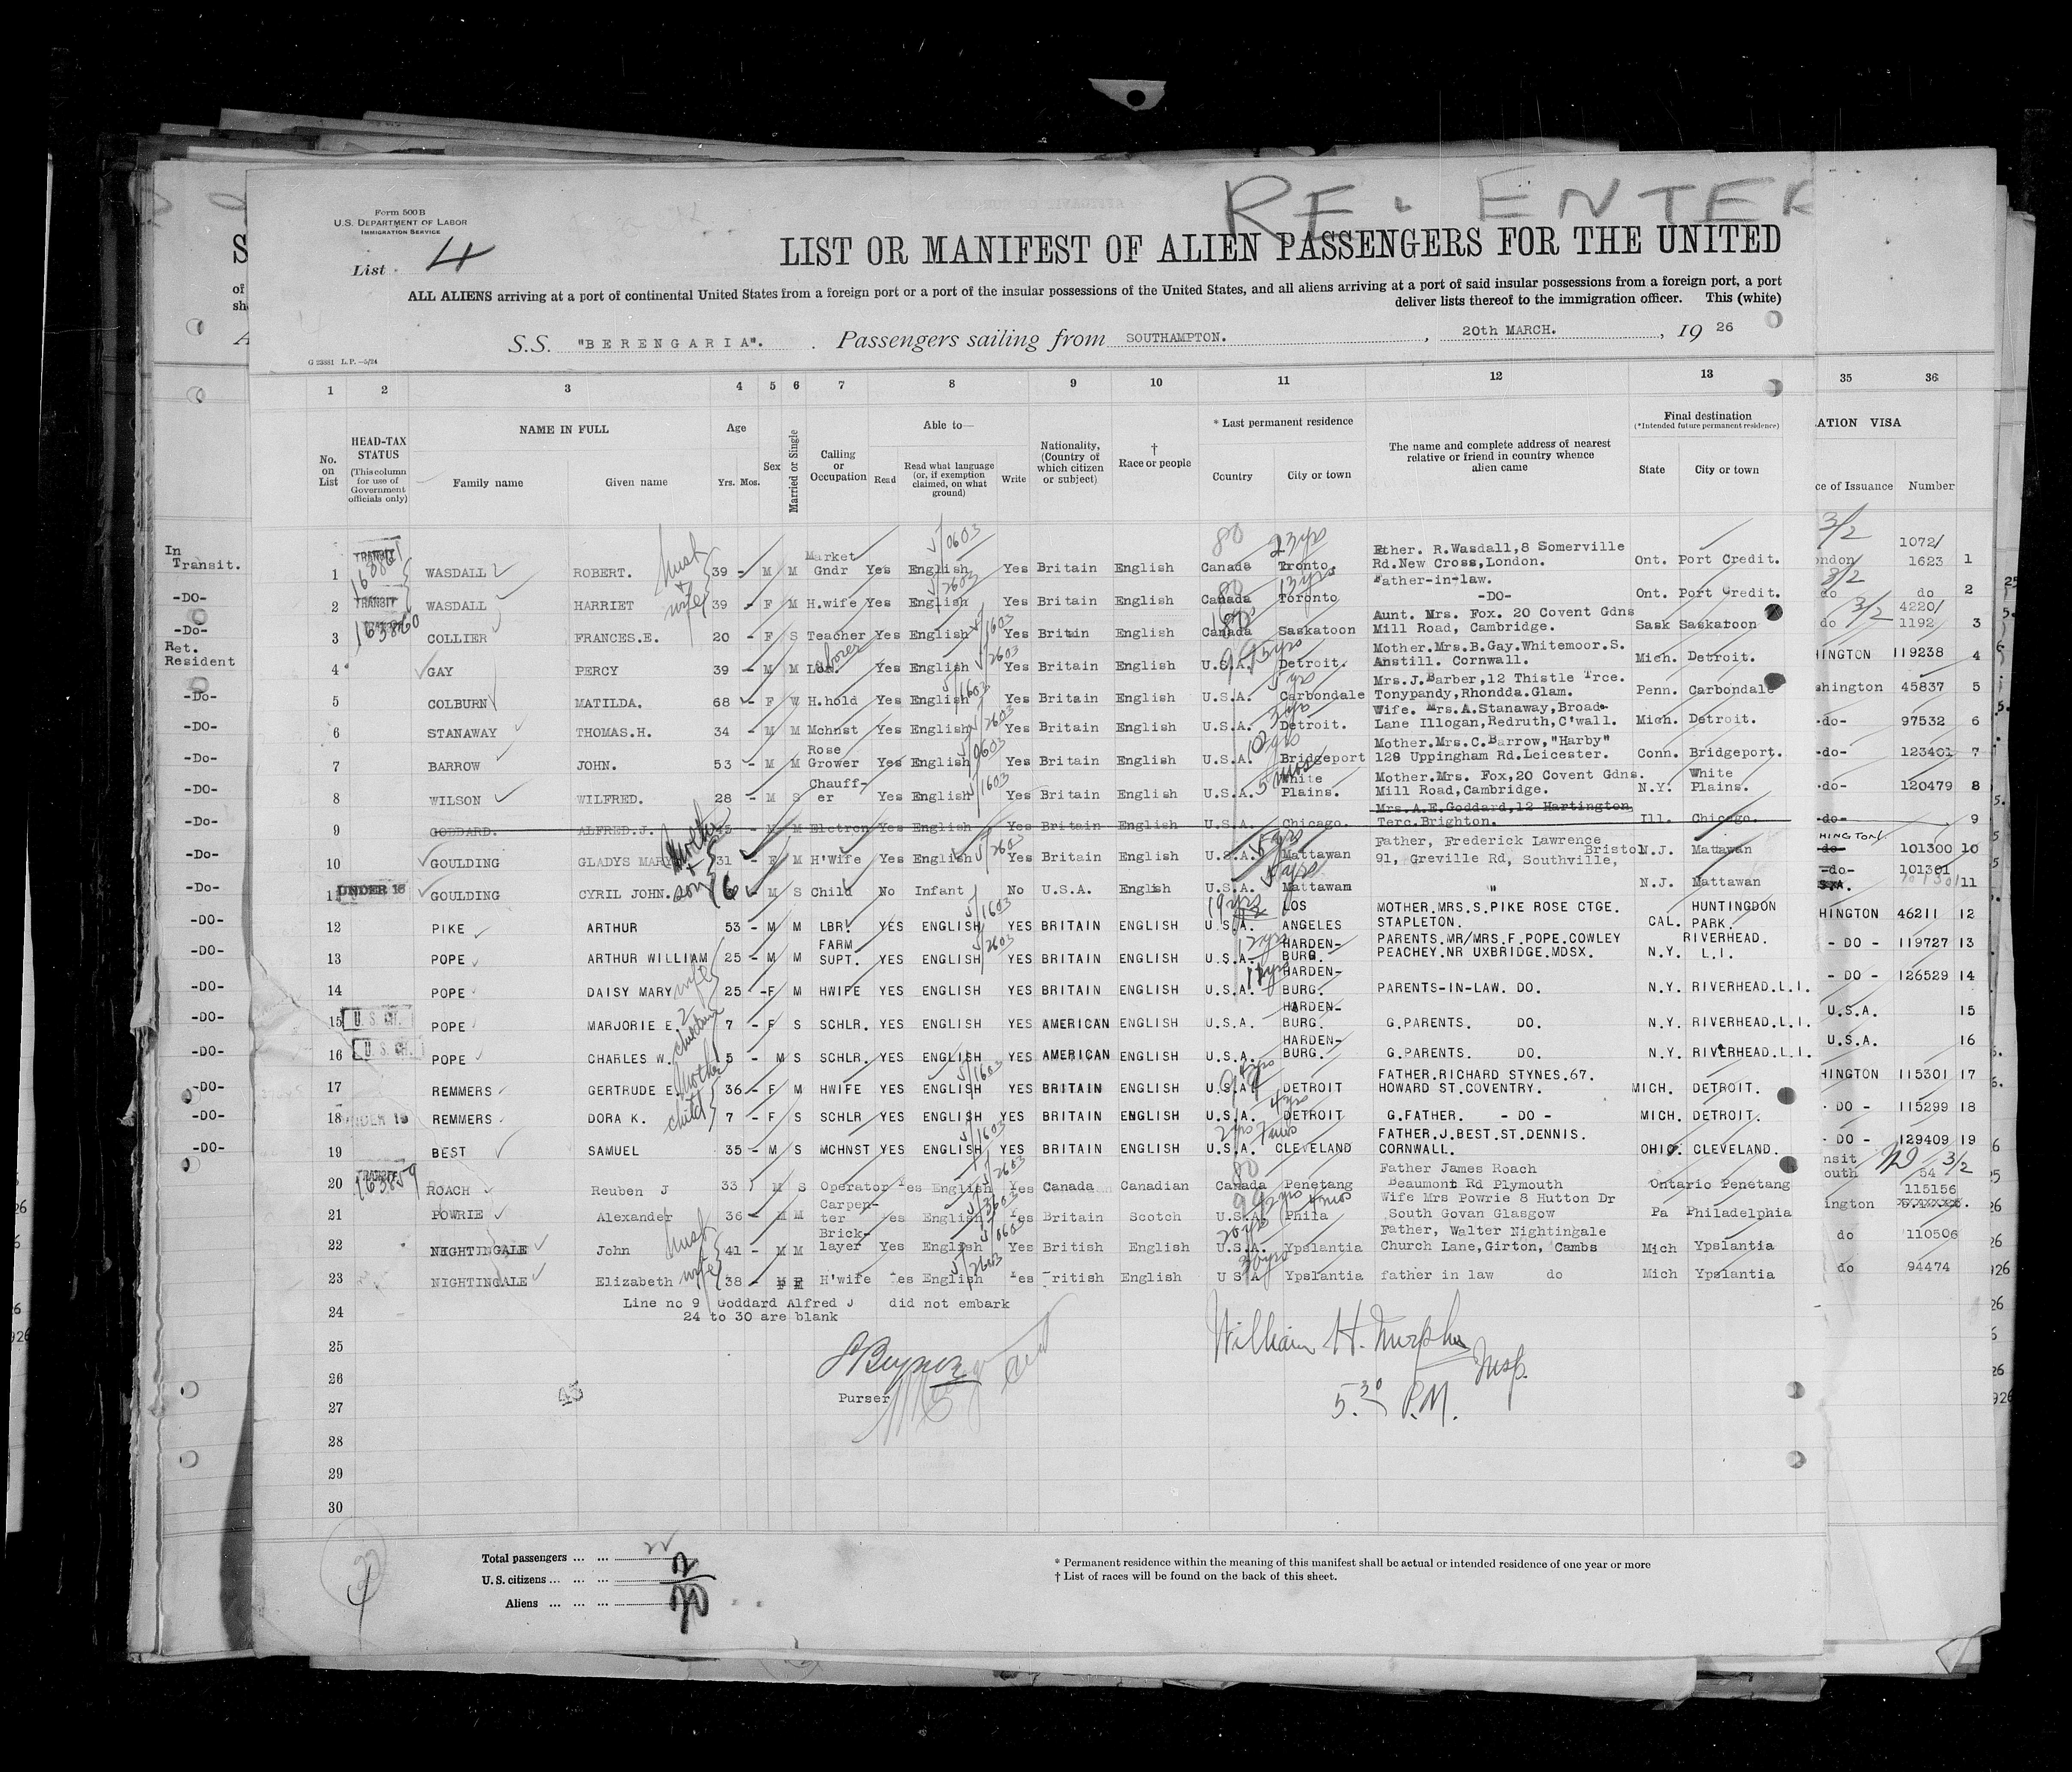 RE-ENTER
Form 500 B
U.S. DEPARTMENT OF LABOR
IMMIGRATION SERVICE
List 4
LIST OR MANIFEST OF ALIEN PASSENGERS FOR THE UNITED
ALL ALIENS arriving at a port of continental United States from a foreign port or a port of the insular possessions of the United States, and all aliens arriving at a port of said insular possessions from a foreign port, a port
deliver lists thereof to the immigration officer. This (white)
S.S. "BERENGARIA". Passengers sailing from SOUTHAMPTON. , 20th MARCH. , 19 26
G 23881 L.P.—5/24
1 2 3 4 5 6 7 8 9 10 11 12 13 35 36
No. on List
HEAD-TAX STATUS (This column for use of Government officials only)
NAME IN FULL Family name Given name
Age Yrs. Mos.
Sex
Married or Single
Calling or Occupation
Able to— Read Read what language (or, if exemption claimed, on what ground) Write
Nationality. (Country of which citizen or subject)
† Race or people
* Last permanent residence Country City or town
The name and complete address of nearest relative or friend in country whence alien came
Final destination (*Intended future permanent residence) State City or town
ATION VISA
ce of Issuance Number
In Transit. TRANSIT 1 WASDALL ROBERT. hust + wife 39 - M M Market Gndr Yes English Yes Britain English Canada Toronto. 23yrs Father. R.Wasdall,8 Somerville Rd.New Cross,London. Ont. Port Credit. ondon 1072/ 1623 1
-DO- TRANSIT 2 WASDALL HARRIET 39 - F M H.wife Yes English Yes Britain English Canada Toronto 13yrs Father-in-law. -DO- Ont. Port Credit. do do 2
-Do- 163860 3 COLLIER FRANCES.E. 20 - F S Teacher Yes English Yes Britain English Canada Saskatoon Aunt. Mrs. Fox. 20 Covent Gdns Mill Road, Cambridge. Sask Saskatoon do 4220/ 1192 3
Ret. Resident 4 GAY PERCY 39 - M M Yes English Yes Britain English U.S.A. Detroit. Mother.Mrs.B.Gay.Whitemoor.S. Anstill. Cornwall. Mich. Detroit. HINGTON 119238 4
-Do- 5 COLBURN MATILDA. 68 - F W H.hold Yes English Yes Britain English U.S.A. Carbondale Mrs.J.Barber,12 Thistle Trce. Tonypandy,Rhondda.Glam. Penn. Carbondale shington 45837 5
-DO- 6 STANAWAY THOMAS.H. 34 - M M Mchnst Yes English Yes Britain English U.S.A. Detroit. 3yrs Wife. Mrs.A.Stanaway,Broad- Lane Illogan,Redruth,C'wall. Mich. Detroit. -do- 97532 6
-Do- 7 BARROW JOHN. 53 - M M Rose Grower Yes English Yes Britain English U.S.A. Bridgeport Mother.Mrs.C.Barrow,"Harby" 128 Uppingham Rd.Leicester. Conn. Bridgeport. -do- 123401 7
-DO- 8 WILSON WILFRED. 28 - M S Chauff-er Yes English Yes Britain English U.S.A. White Plains. 5 mos Mother.Mrs. Fox,20 Covent Gdns. Mill Road,Cambridge. N.Y. White Plains. -do- 120479 8
-Do- 9 GODDARD. ALFRED.J. M M Elctrcn Yes English Yes Britain English U.S.A. Chicago. Mrs.A.E.Goddard,12 Hartington Terc.Brighton. Ill. Chicago. -do- 9
-Do- 10 GOULDING GLADYS MARY Mother + son 31 - F M H'Wife Yes English Yes Britain English U.S.A. Mattawan Father, Frederick Lawrence 91, Greville Rd, Southville, Bristol N.J. Mattawan HINGTON 101300 10
-Do- UNDER 16 11 GOULDING CYRIL JOHN. 6 - M S Child No Infant No U.S.A. English U.S.A. Mattawam " N.J. Mattawan -do- 101301 11
-DO- 12 PIKE ARTHUR 53 - M M LBR. YES ENGLISH YES BRITAIN ENGLISH U.S.A. LOS ANGELES 19yrs MOTHER.MRS.S.PIKE ROSE CTGE. STAPLETON. CAL. HUNTINGDON PARK. HINGTON 46211 12
-DO- 13 POPE ARTHUR WILLIAM 25 - M M FARM SUPT. YES ENGLISH YES BRITAIN ENGLISH U.S.A. HARDEN-BURG. PARENTS.MR/MRS.F.POPE.COWLEY PEACHEY.NR UXBRIDGE.MDSX. N.Y. RIVERHEAD. L.I. - DO - 119727 13
-DO- 14 POPE DAISY MARY wife 25 -F M HWIFE YES ENGLISH YES BRITAIN ENGLISH U.S.A. HARDEN-BURG. PARENTS-IN-LAW. DO. N.Y. RIVERHEAD.L.I. - DO - 126529 14
-DO- U.S. CH. 15 POPE MARJORIE E. 2 children 7 - F S SCHLR. YES ENGLISH YES AMERICAN ENGLISH U.S.A. HARDEN-BURG. G.PARENTS. DO. N.Y. RIVERHEAD.L.I. U.S.A. 15
-DO- U.S. CH. 16 POPE CHARLES W. 5 - M S SCHLR. YES ENGLISH YES AMERICAN ENGLISH U.S.A. HARDEN-BURG. G.PARENTS. DO. N.Y. RIVERHEAD.L.I. U.S.A. 16
-DO- 17 REMMERS GERTRUDE E. Mother + child 36 - F M HWIFE YES ENGLISH YES BRITAIN ENGLISH U.S.A. DETROIT FATHER.RICHARD STYNES.67. HOWARD ST.COVENTRY. MICH. DETROIT. HINGTON 115301 17
-DO- UNDER 16 18 REMMERS DORA K. 7 - F S SCHLR YES ENGLISH YES BRITAIN ENGLISH U.S.A. DETROIT 4yrs G.FATHER. - DO - MICH. DETROIT. - DO - 115299 18
-DO- 19 BEST SAMUEL 35 - M S MCHNST YES ENGLISH YES BRITAIN ENGLISH U.S.A. CLEVELAND 2yrs 7mos FATHER.J.BEST.ST.DENNIS. CORNWALL. OHIO. CLEVELAND. - DO - 129409 19
TRANSIT 163859 20 ROACH Reuben J 33 M S Operator Yes English Y Canada Canadian Canada Penetang Father James Roach Beaumont Rd Plymouth Ontario Penetang nsit outh 54 3/2
21 POWRIE Alexander 36 - M M Carpen-ter Yes English Yes Britain Scotch U.S.A. Phila Wife Mrs Powrie 8 Hutton Dr South Govan Glasgow Pa Philadelphia ington 115156
22 NIGHTINGALE John husb + wife 41 - M M Brick-layer Yes English Yes British English U.S.A. Ypslantia Father, Walter Nightingale Church Lane,Girton, Cambs Mich Ypslantia do 110506
23 NIGHTINGALE Elizabeth 38 - F H'wife Yes English Yes British English U S A Ypslantia father in law do Mich Ypslantia do 94474
24 Line no 9 Goddard Alfred J did not embark
24 to 30 are blank
25 William H. Murphy
26 Insp.
Purser
27 5.30 P.M.
28
29
30
Total passengers ... ...
U.S. citizens ... ... ... 2
Aliens ... ... ... 20
* Permanent residence within the meaning of this manifest shall be actual or intended residence of one year or more
† List of races will be found on the back of this sheet.